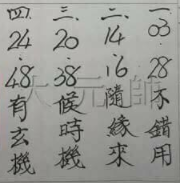 一.03.28不錯用
二.14.16隨緣來
三.20.38候時機
四.24.48有玄機
大元帥